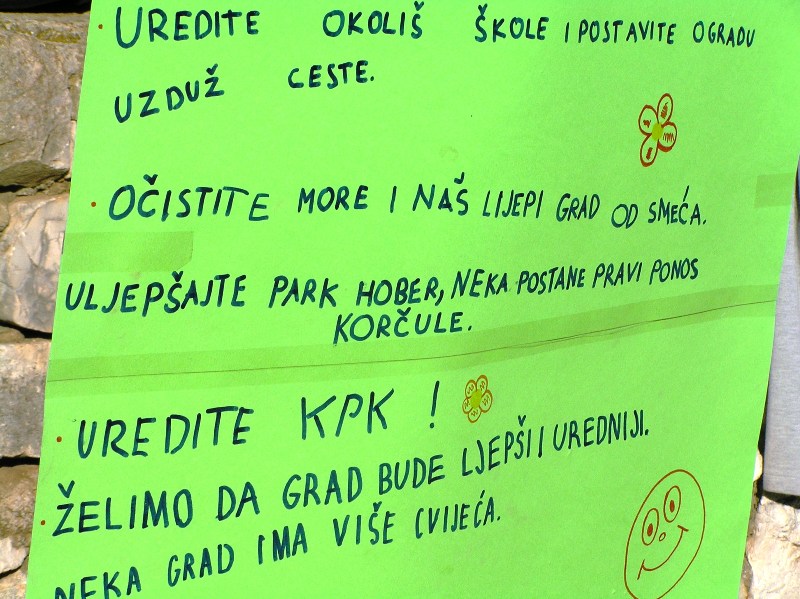 · UREDITE OKOLIŠ ŠKOLE I POSTAVITE OGRADU
UZDUŽ CESTE.
· OČISTITE MORE I NAŠ LIJEPI GRAD OD SMEĆA.
ULJEPŠAJTE PARK HOBER, NEKA POSTANE PRAVI PONOS
KORČULE.
· UREDITE KPK !
· ŽELIMO DA GRAD BUDE LJEPŠI I UREDNIJI.
NEKA GRAD IMA VIŠE CVIJEĆA.